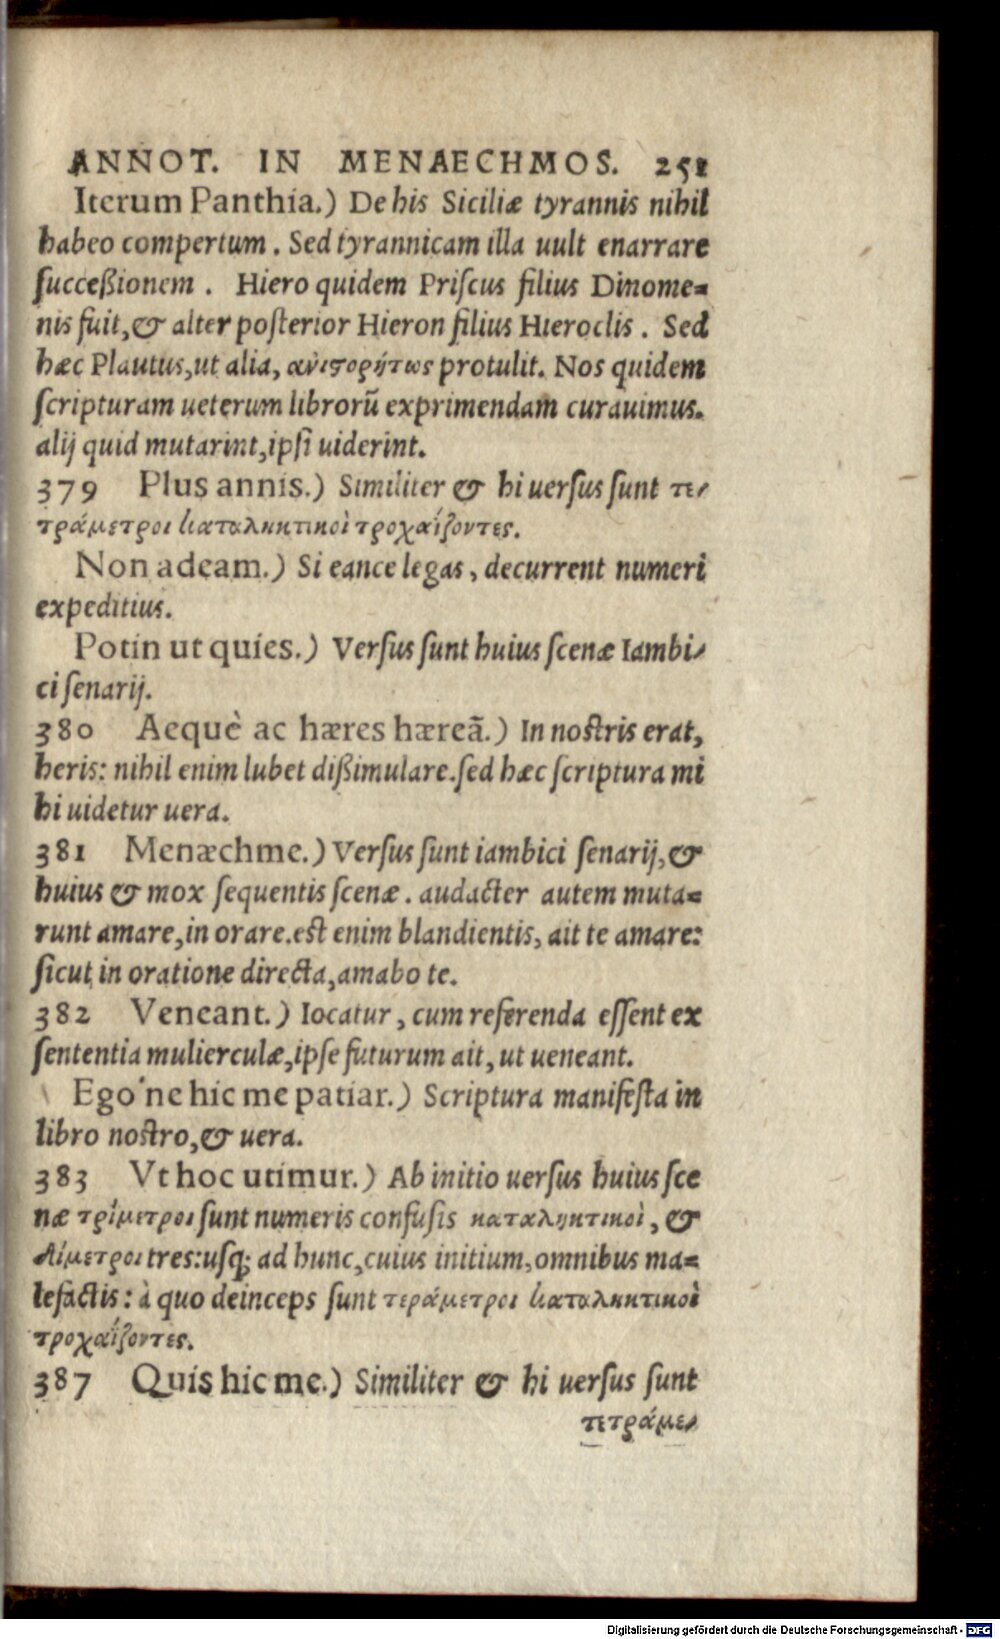 ANNOT. IN MENAECHMOS. 251
Iterum Panthia.) De his Siciliæ tyrannis nihil
habeo compertum. Sed tyrannicam illa uult enarrare
succeßionem. Hiero quidem Priscus filius Dinome=
nis fuit, & alter posterior Hieron filius Hieroclis. Sed
hæc Plautus, ut alia, ἀνιστορήτως protulit. Nos quidem
scripturam ueterum librorũ exprimendam curauimus.
alij quid mutarint, ipsi uiderint.
379 Plus annis.) Similiter & hi uersus sunt τε-
τράμετροι καταληκτικοὶ τροχαΐζοντες.
Non adeam.) Si eance legas, decurrent numeri
expeditius.
Potin ut quies.) Versus sunt huius scenæ Iambi-
ci senarij.
380 Aequè ac hæres hæreã.) In nostris erat,
heris: nihil enim lubet dißimulare. sed hæc scriptura mi
hi uidetur uera.
381 Menæchme.) Versus sunt iambici senarij, &
huius & mox sequentis scenæ. audacter autem muta=
runt amare, in orare. est enim blandientis, ait te amare:
sicut in oratione directa, amabo te.
382 Veneant.) Iocatur, cum referenda essent ex
sententia mulierculæ, ipse futurum ait, ut ueneant.
Ego'ne hic me patiar.) Scriptura manifesta in
libro nostro, & uera.
383 Vt hoc utimur.) Ab initio uersus huius sce
næ τρίμετροι sunt numeris confusis καταληκτικοὶ, &
δίμετροι tres: usq; ad hunc, cuius initium, omnibus ma=
lefactis: à quo deinceps sunt τεράμετροι καταληκτικοὶ
τροχαΐζοντες.
387 Quis hic me.) Similiter & hi uersus sunt
τετράμε-
Digitalisierung gefördert durch die Deutsche Forschungsgemeinschaft - DFG